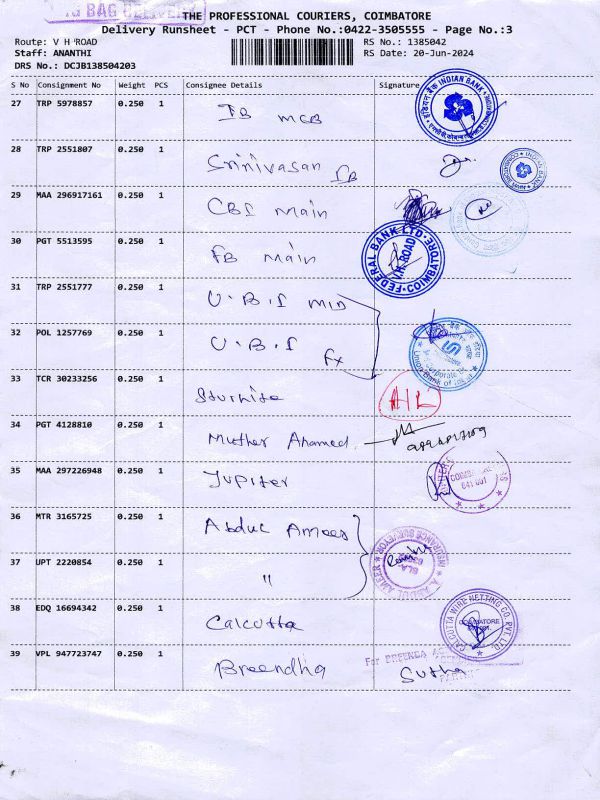 BAG DELIVERY
THE PROFESSIONAL COURIERS, COIMBATORE
Delivery Runsheet - PCT - Phone No.:0422-3505555 - Page No.:3
Route: V H ROAD
RS No.: 1385042
Staff: ANANTHI
RS Date: 20-Jun-2024
DRS No.: DCJB138504203
S No Consignment No Weight PCS Consignee Details Signature
27 TRP 5978857 0.250 1 IB MCB
INDIAN BANK
28 TRP 2551807 0.250 1 Srinivasan IB
INDIAN BANK
29 MAA 296917161 0.250 1 CBI Main
30 PGT 5513595 0.250 1 FB Main
FEDERAL BANK LTD. COIMBATORE
V.H. ROAD
31 TRP 2551777 0.250 1 U.B.I MID
32 POL 1257769 0.250 1 U.B.I fx
Union Bank of India
33 TCR 30233256 0.250 1
34 PGT 4128810 0.250 1 Muther Ahamed
35 MAA 297226948 0.250 1 Jupiter
COIMBATORE
641 001
36 MTR 3165725 0.250 1 Abdul Ameer
INSURANCE SURVEYOR
A. ABDUL AMEER
37 UPT 2220854 0.250 1 "
38 EDQ 16694342 0.250 1 Calcutta
CALCUTTA WIRE NETTING CO. PVT. LTD.
COIMBATORE
39 VPL 947723747 0.250 1 Breendha
For BREENDA
Sutha